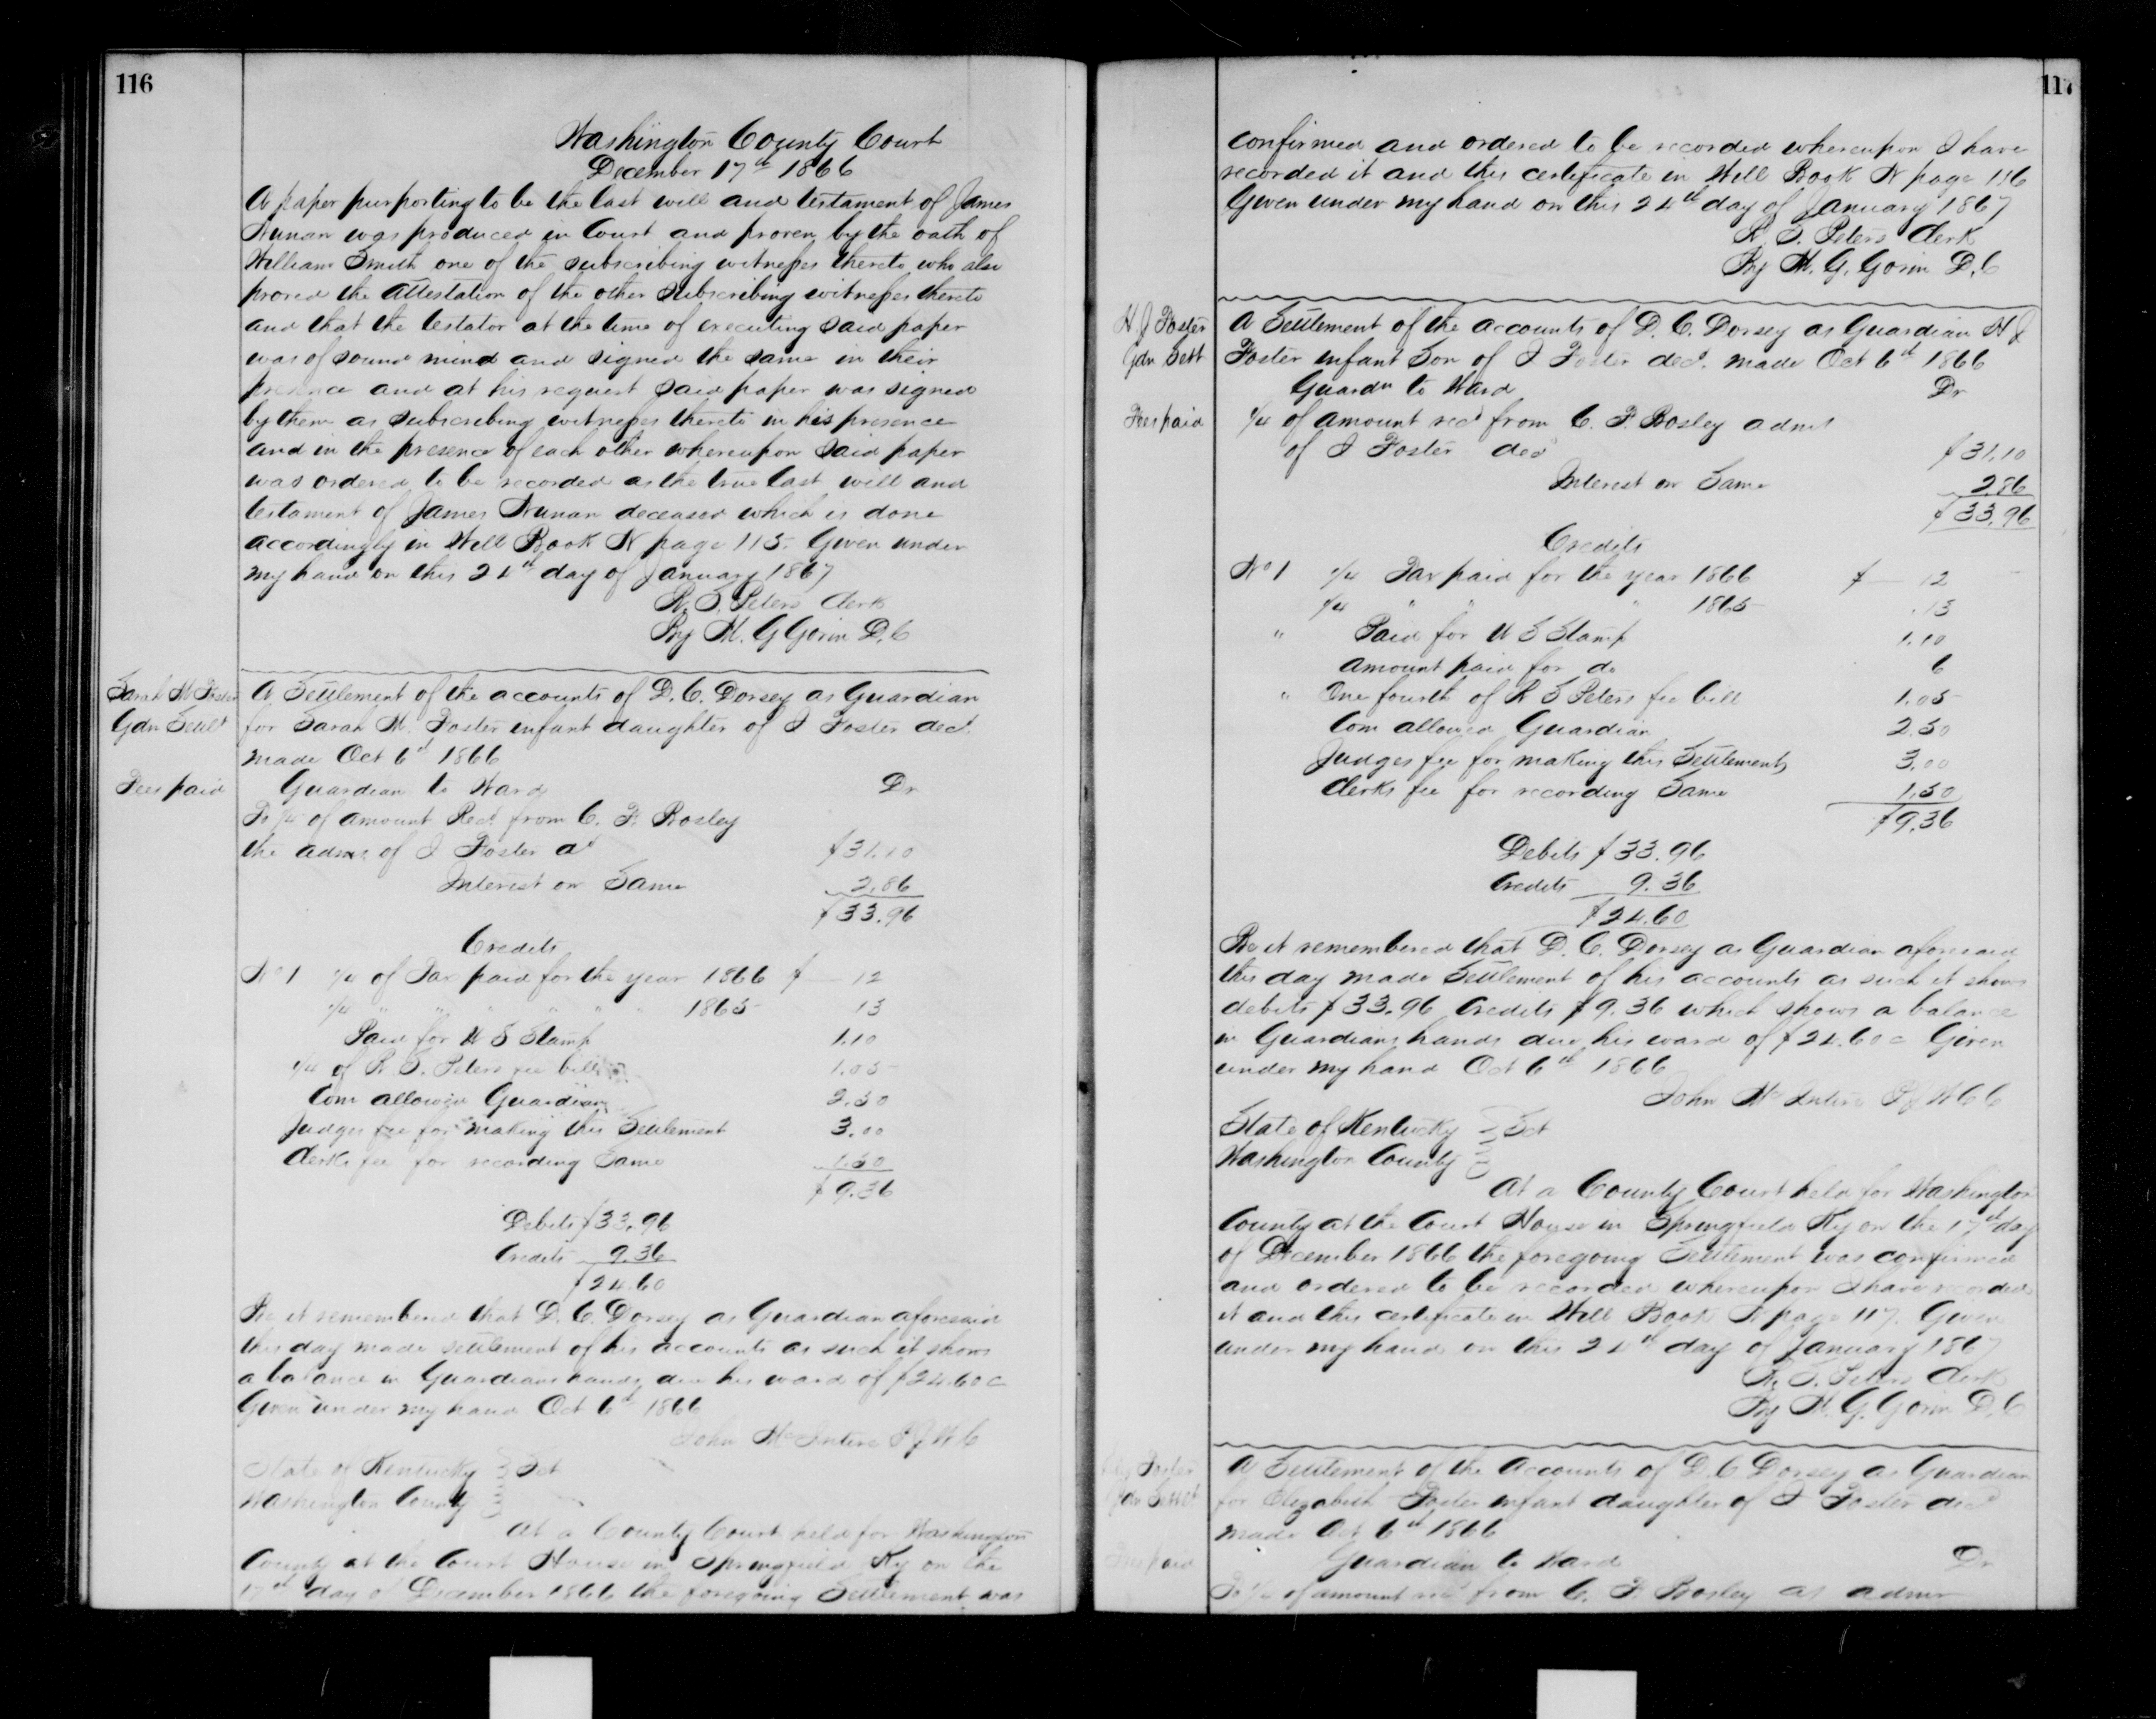 116
Washington County Court
December 17th 1866
A paper purporting to be the last will and testament of James
Nunan was produced in Court and proven by the oath of
William Smith one of the subscribing witnesses thereto who also
proved the attestation of the other subscribing witnesses thereto
and that the testator at the time of executing said paper
was of sound mind and signed the same in their
presence and at his request said paper was signed
by them as subscribing witnesses thereto in his presence
and in the presence of each other whereupon said paper
was ordered to be recorded as the true last will and
testament of James Nunan deceased which is done
accordingly in Will Book N page 115. Given under
my hand on this 24th day of January 1867
R. S. Peters Clerk
By M. G Gorin D. C
Sarah M Foster
Gdn Settlt
Fees paid
A Settlement of the accounts of D. C. Dorsey as Guardian
for Sarah M. Foster infant daughter of J Foster decd.
made Oct 6th 1866
Guardian to Ward Dr
To 1/4 of amount Recd. from C. F. Bosley
the admr of J Foster dd $31.10
Interest on Same 2.86
$33.96
Credits
No 1 1/4 of Tax paid for the year 1866 $ — 12
1/4 " " " " " " 1865 13
Paid for U S Stamp 1.10
1/4 of R. S. Peters fee bill 1.05
Com allowed Guardian 2.50
Judges fee for making this Settlement 3.00
Clerks fee for recording Same 1.50
$9.36
Debits $33.96
Credits 9.36
$24.60
Be it remembered that D. C. Dorsey as Guardian aforesaid
this day made settlement of his accounts as such it shows
a balance in Guardians hands due his ward of $24.60c
Given under my hand Oct 6th 1866
John McIntire P J W C
State of Kentucky
Washington County Sct
At a County Court held for Washington
County at the Court House in Springfield Ky on the
17th day of December 1866 the foregoing Settlement was
117
confirmed and ordered to be recorded whereupon I have
recorded it and this certificate in Will Book N page 116
Given under my hand on this 24th day of January 1867
R. S. Peters Clerk
By M. G. Gorin D. C
H. J Foster
Gdn Sett
Fees paid
A Settlement of the accounts of D. C. Dorsey as Guardian H J
Foster infant Son of J Foster decd. made Oct 6th 1866
Guardn to Ward Dr
1/4 of amount recd from C. F. Bosley admr
of J Foster decd $31.10
Interest on Same 2.86
$33.96
Credits
No 1 1/4 Tax paid for the year 1866 $ — 12
1/4 " " " 1865 .13
" Paid for U S Stamp 1.10
amount paid for do 6
" One fourth of R S Peters fee bill 1.05
Com allowed Guardian 2.50
Judges fee for making this Settlement 3.00
Clerks fee for recording Same 1.50
$9.36
Debits $33.96
Credits 9.36
$24.60
Be it remembered that D. C. Dorsey as Guardian aforesaid
this day made Settlement of his accounts as such it shows
debits $33.96 Credits $9.36 which shows a balance
in Guardians hands due his ward of $24.60c Given
under my hand Oct 6th 1866
John McIntire P J W C C
State of Kentucky
Washington County Sct
At a County Court held for Washington
County at the Court House in Springfield Ky on the 17th day
of December 1866 the foregoing Settlement was confirmed
and ordered to be recorded whereupon I have recorded
it and this certificate in Will Book N page 117. Given
under my hand on this 24th day of January 1867
R. S. Peters Clerk
By M. G. Gorin D. C
Foster
Gdn Settlt
Fees paid
A Settlement of the Accounts of D. C Dorsey as Guardian
for Elizabeth Foster infant daughter of J Foster decd
made Oct 6th 1866
Guardian to Ward Dr
To 1/4 of amount recd from C. F. Bosley as admr